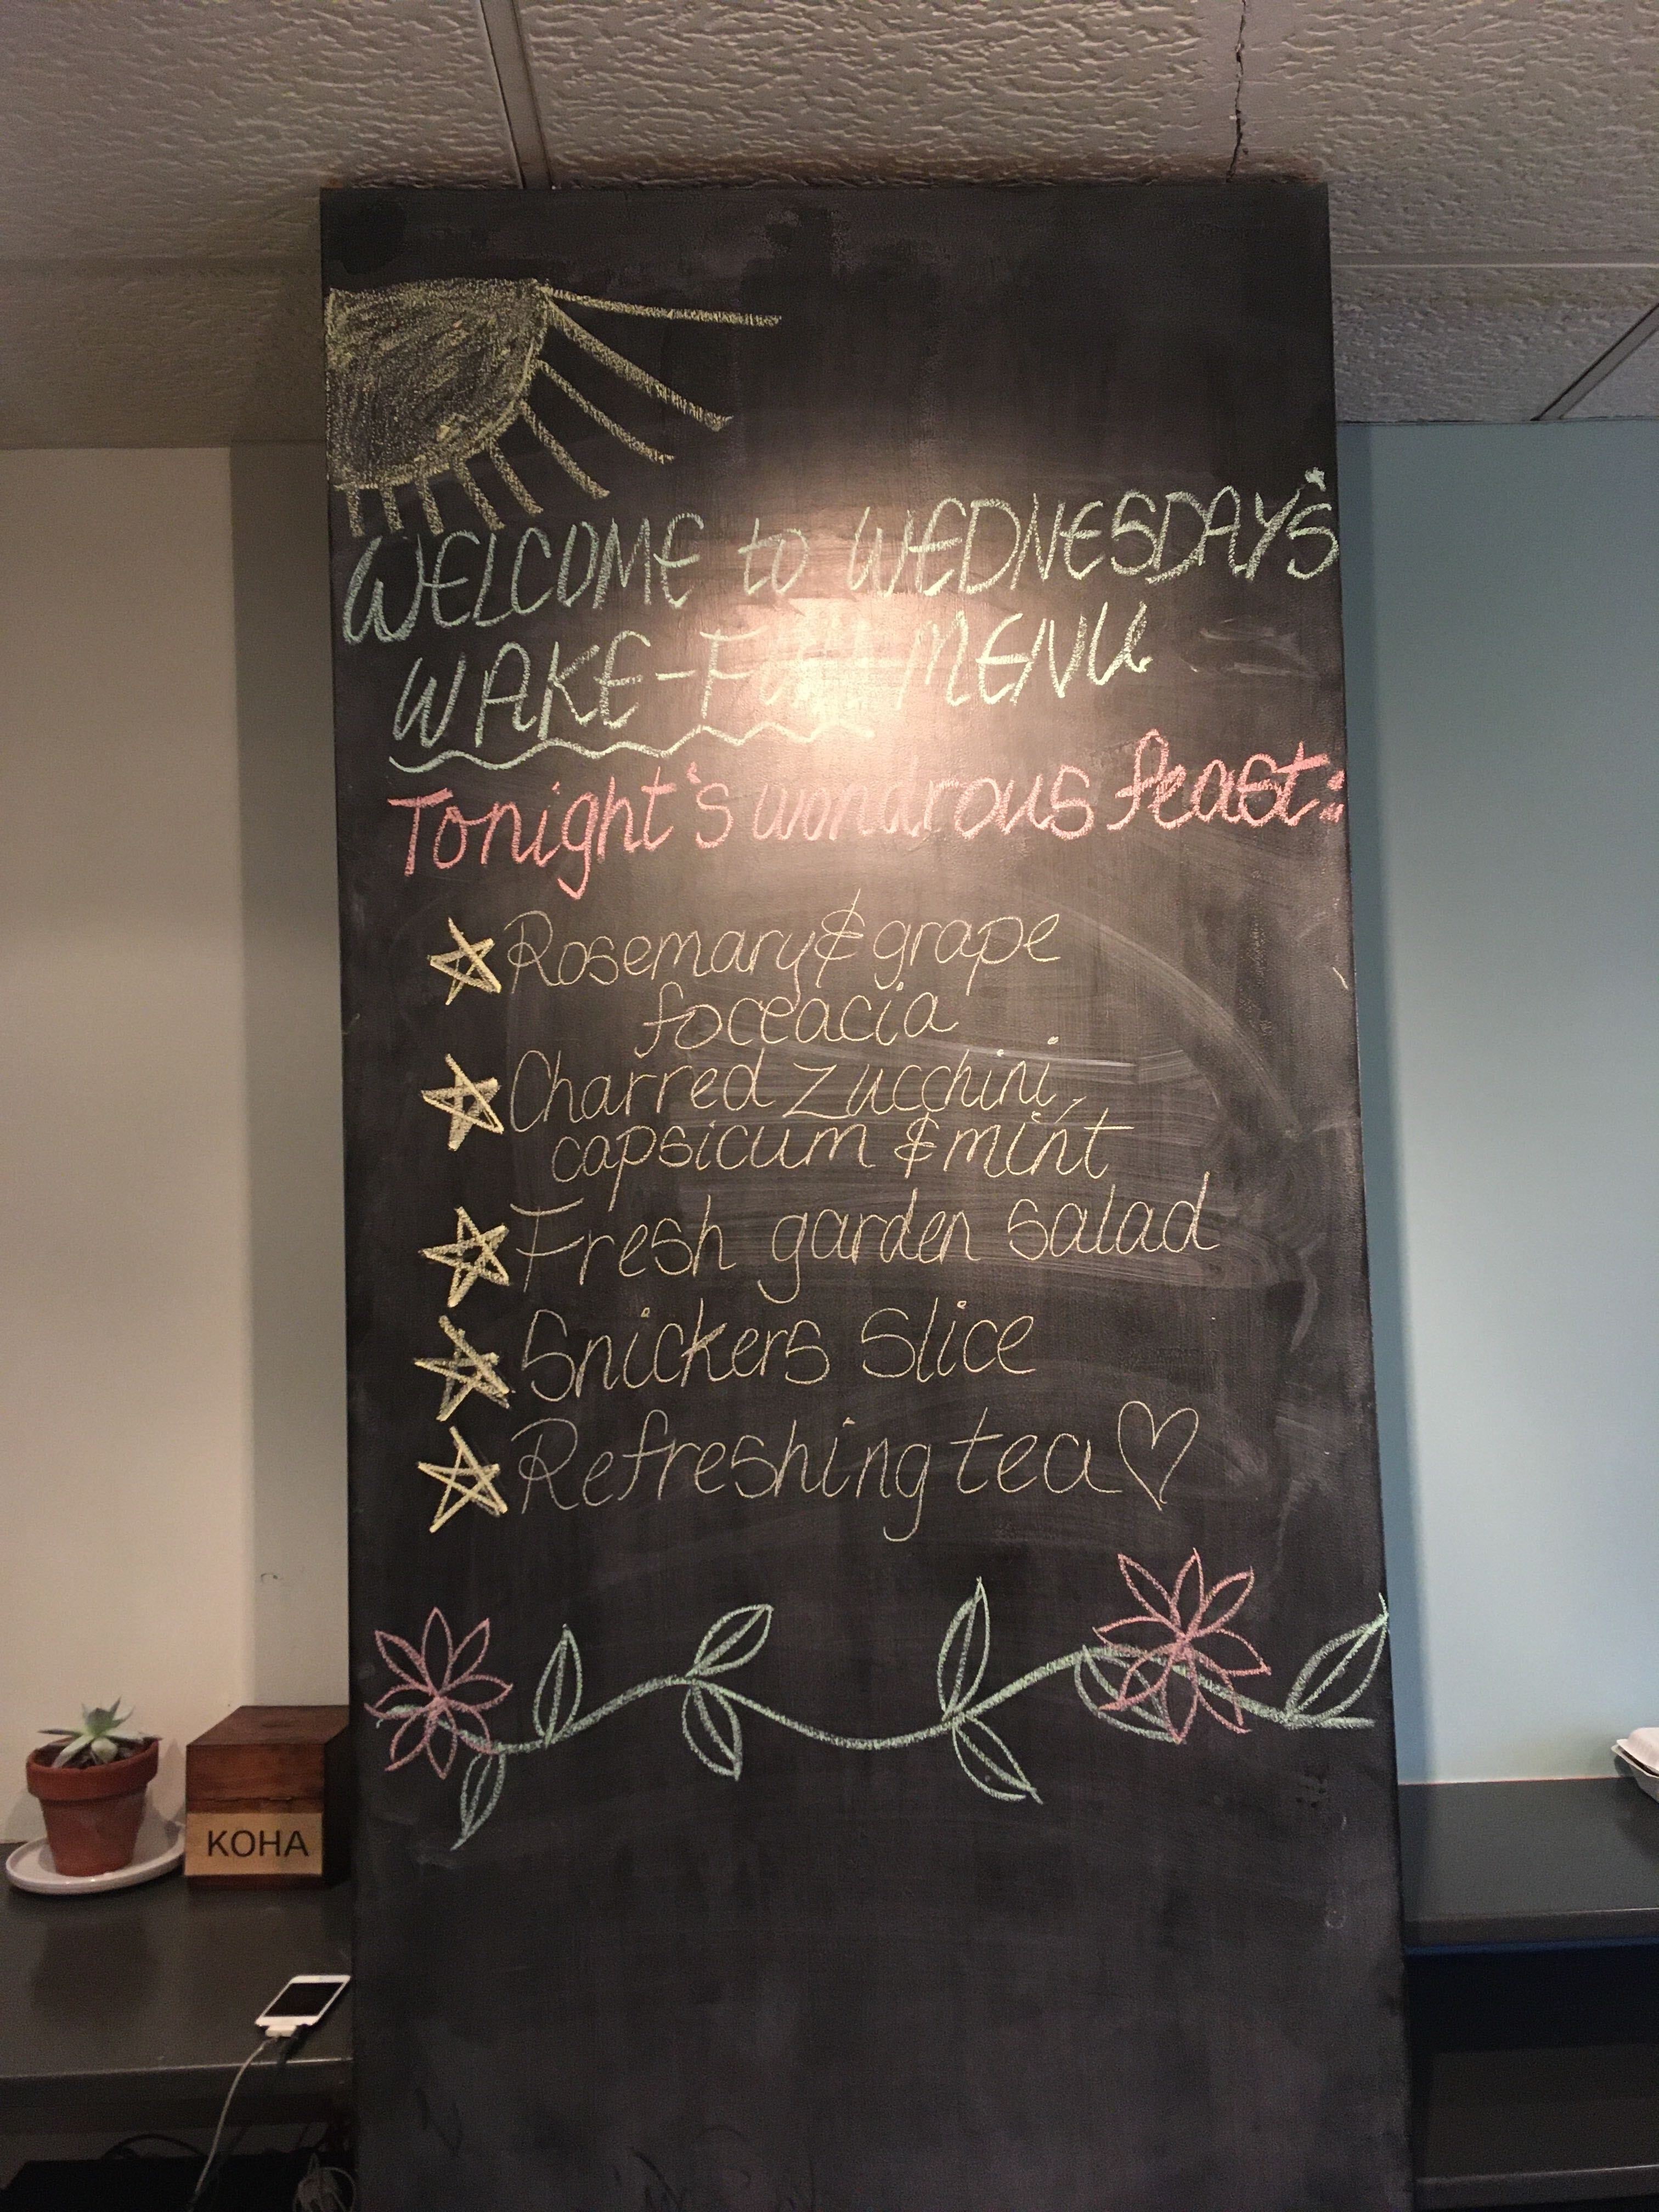 WELCOME to WEDNESDAY'S
WAKE-FUL MENU
Tonight's wondrous feast:
Rosemary & grape
foceacia
Charred zucchini,
capsicum & mint
Fresh garden salad
Snickers Slice
Refreshing tea
KOHA